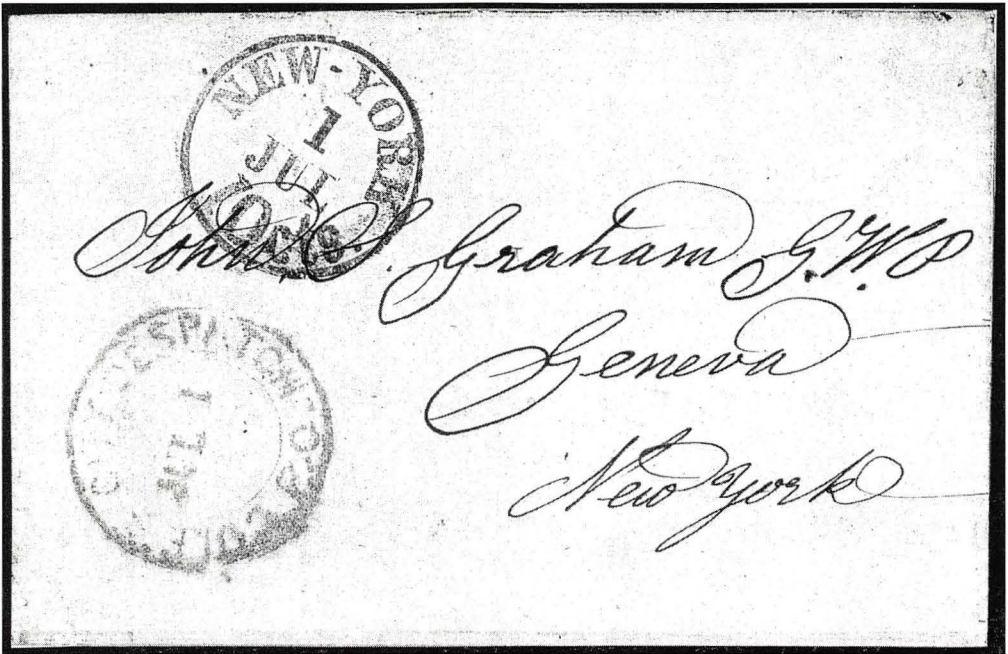 NEW-YORK
1
JUL
10 cts
John C. Graham G.W.P
Geneva
New York
CITY DESPATCH POST
JUL 1